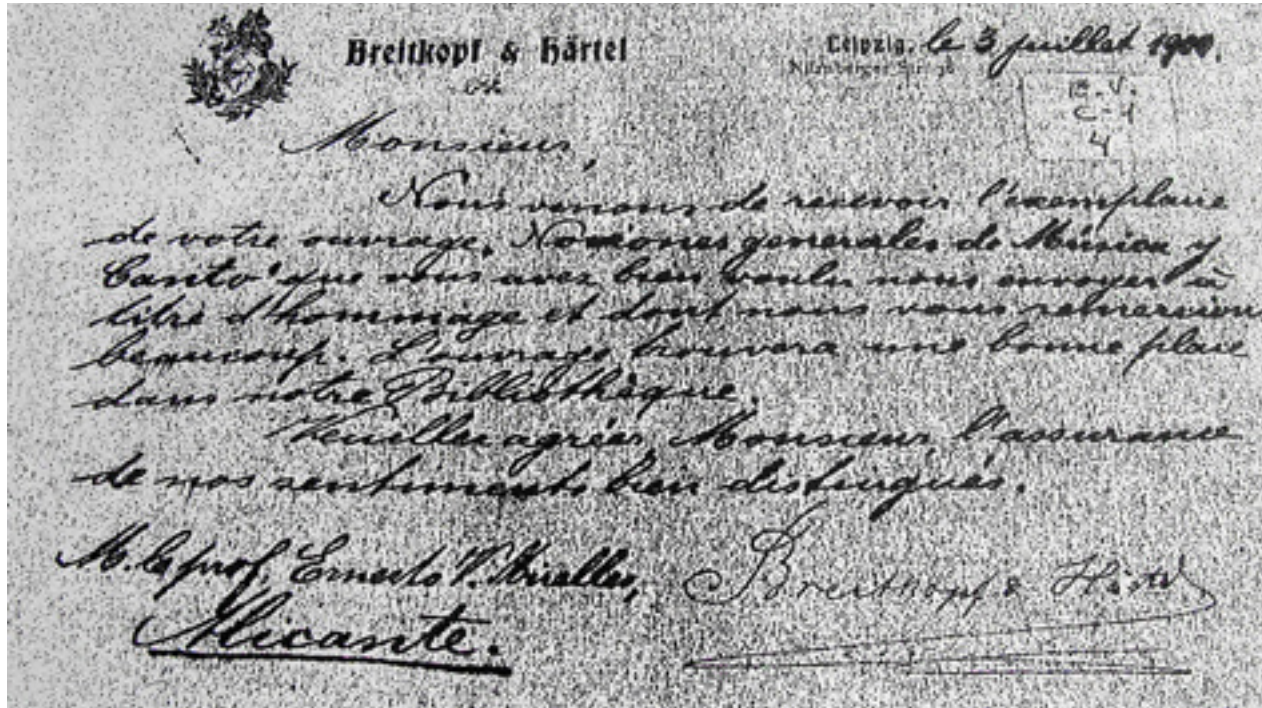 Breitkopf & Härtel
Leipzig, le 3 juillet 1900.
Nürnberger Str. 36
Monsieur,
Nous venons de recevoir l'exemplaire
de votre ouvrage, Nociones generales de Música y
Canto" que vous avez bien voulu nous envoyer à
titre d'hommage et dont nous vous remercions
beaucoup. L'ouvrage trouvera une bonne place
dans notre Bibliothèque.
Veuillez agréer, Monsieur, l'assurance
de nos sentiments bien distingués.
M. le prof. Ernesto V.
Alicante.
Breitkopf & Härtel